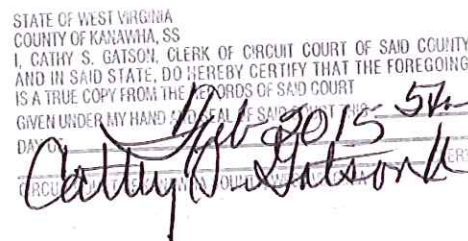 STATE OF WEST VIRGINIA
COUNTY OF KANAWHA, SS
I, CATHY S. GATSON, CLERK OF CIRCUIT COURT OF SAID COUNTY
AND IN SAID STATE, DO HEREBY CERTIFY THAT THE FOREGOING
IS A TRUE COPY FROM THE RECORDS OF SAID COURT
GIVEN UNDER MY HAND AND SEAL OF SAID COURT THIS 5th
DAY OF Feb 2015
Cathy S. Gatson